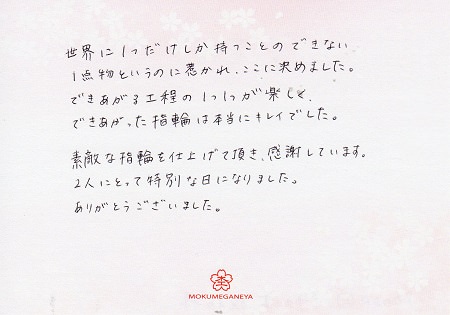 世界に1つだけしか持つことのできない
1点物というのに惹かれ、ここに決めました。
できあがる工程の1つ1つが楽しく、
できあがった指輪は本当にキレイでした。
素敵な指輪を仕上げて頂き、感謝しています。
2人にとって特別な日になりました。
ありがとうございました。
MOKUMEGANEYA